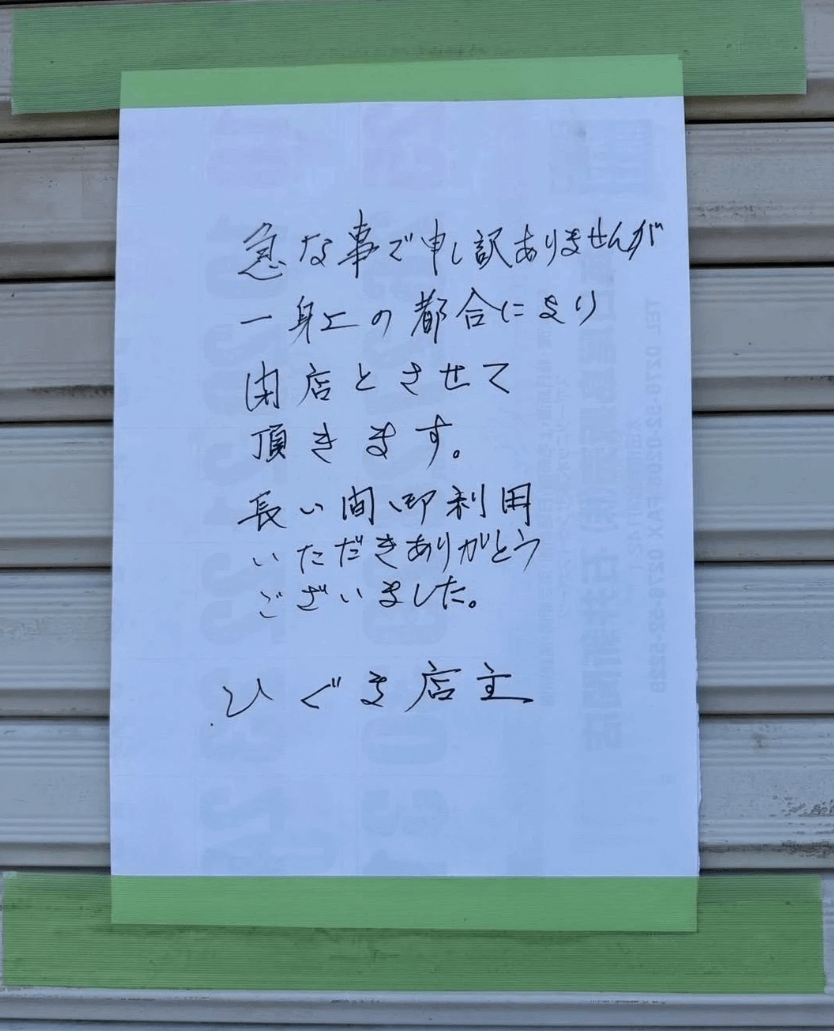 急な事で申し訳ありませんが
一身上の都合により
閉店とさせて
頂きます。
長い間御利用
いただきありがとう
ございました。
ひぐま店主